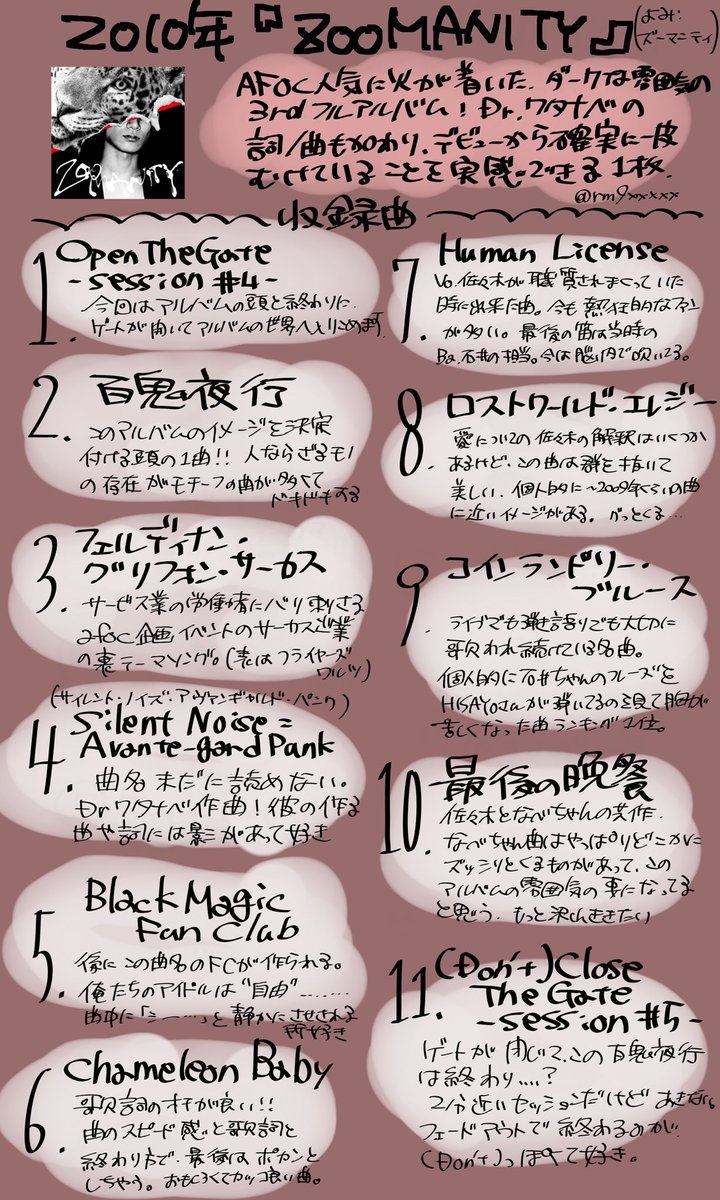 2010年『ZOOMANITY』
(よみ:
ズーマニティ)
ZOOMANITY
AFOC人気に火が着いた、ダークな雰囲気の
3rdフルアルバム!Dr.ワタナベの
詞/曲も加わり、デビューから確実に一皮
むけていることを実感できる1枚.
@rm9xxxxxx
収録曲
1. OpenTheGate
-session #4-
今回はアルバムの頭と終わりに、
ゲートが開いてアルバムの世界へ
2. 百鬼夜行
このアルバムのイメージを決定
付ける頭の1曲!!人ならざるモノ
の存在がモチーフの曲が多くて
ドキドキする
3. フェルディナン・
グリフォン・サーカス
サービス業の労働者にバリ刺さる
afoc企画イベントのサーカス
の裏テーマソング。(表はフライヤーズ
ワルツ)
(サイレント・ノイズ・アヴァンギャルド・パンク)
4. Silent Noise=
Avante-gard Pank
曲名未だに読めない。
Drワタナベ作曲!彼の作る
曲や詞には影があって好き
5. Black Magic
Fan Club
後にこの曲名のFCが作られる。
俺たちのアイドルは"自由"……
曲中に「シー…っと静かにさせされる
所好き
6. Chameleon Baby
歌詞のオチが良い!!
曲のスピード感と歌詞と
終わり方で、最後はポカンと
しちゃう。おもしろくてカッコ良い曲。
7. Human License
Vo.佐々木が職質されまくっていた
時に出来た曲。今も熱狂的なファン
が多い。最後の笛は当時の
Ba.石井の担当。今は脳内で吹いてる。
8. ロストワールド・エレジー
愛についての佐々木の解釈はいくつか
あるけど、この曲は群を抜いて
美しい。個人的に~2009年くらいの曲
に近いイメージがある。ぐっとくる…
9. コインランドリー・
ブルース
ライブでも弾き語りでも大切に
歌われ続けている名曲。
個人的に石井ちゃんのフレーズを
HISAYOさんが弾いてるの見て胸が
苦しくなった曲ランキング1位。
10. 最後の晩餐
佐々木となべちゃんの共作。
なべちゃん曲はやっぱりどこかに
ズッシリとくるものがあって、この
アルバムの雰囲気の要になってる
と思う。もっと沢山ききたい
11. (Don't)Close
The Gate
-session #5-
ゲートが閉じて、この百鬼夜行
は終わり…?
2分近いセッションだけどあきない。
フェードアウトで終わるのが、
(Don't)っぽくて好き。